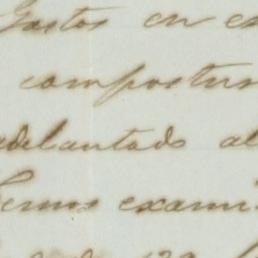 Gastos en
compostur
adelantado al
hemos exami